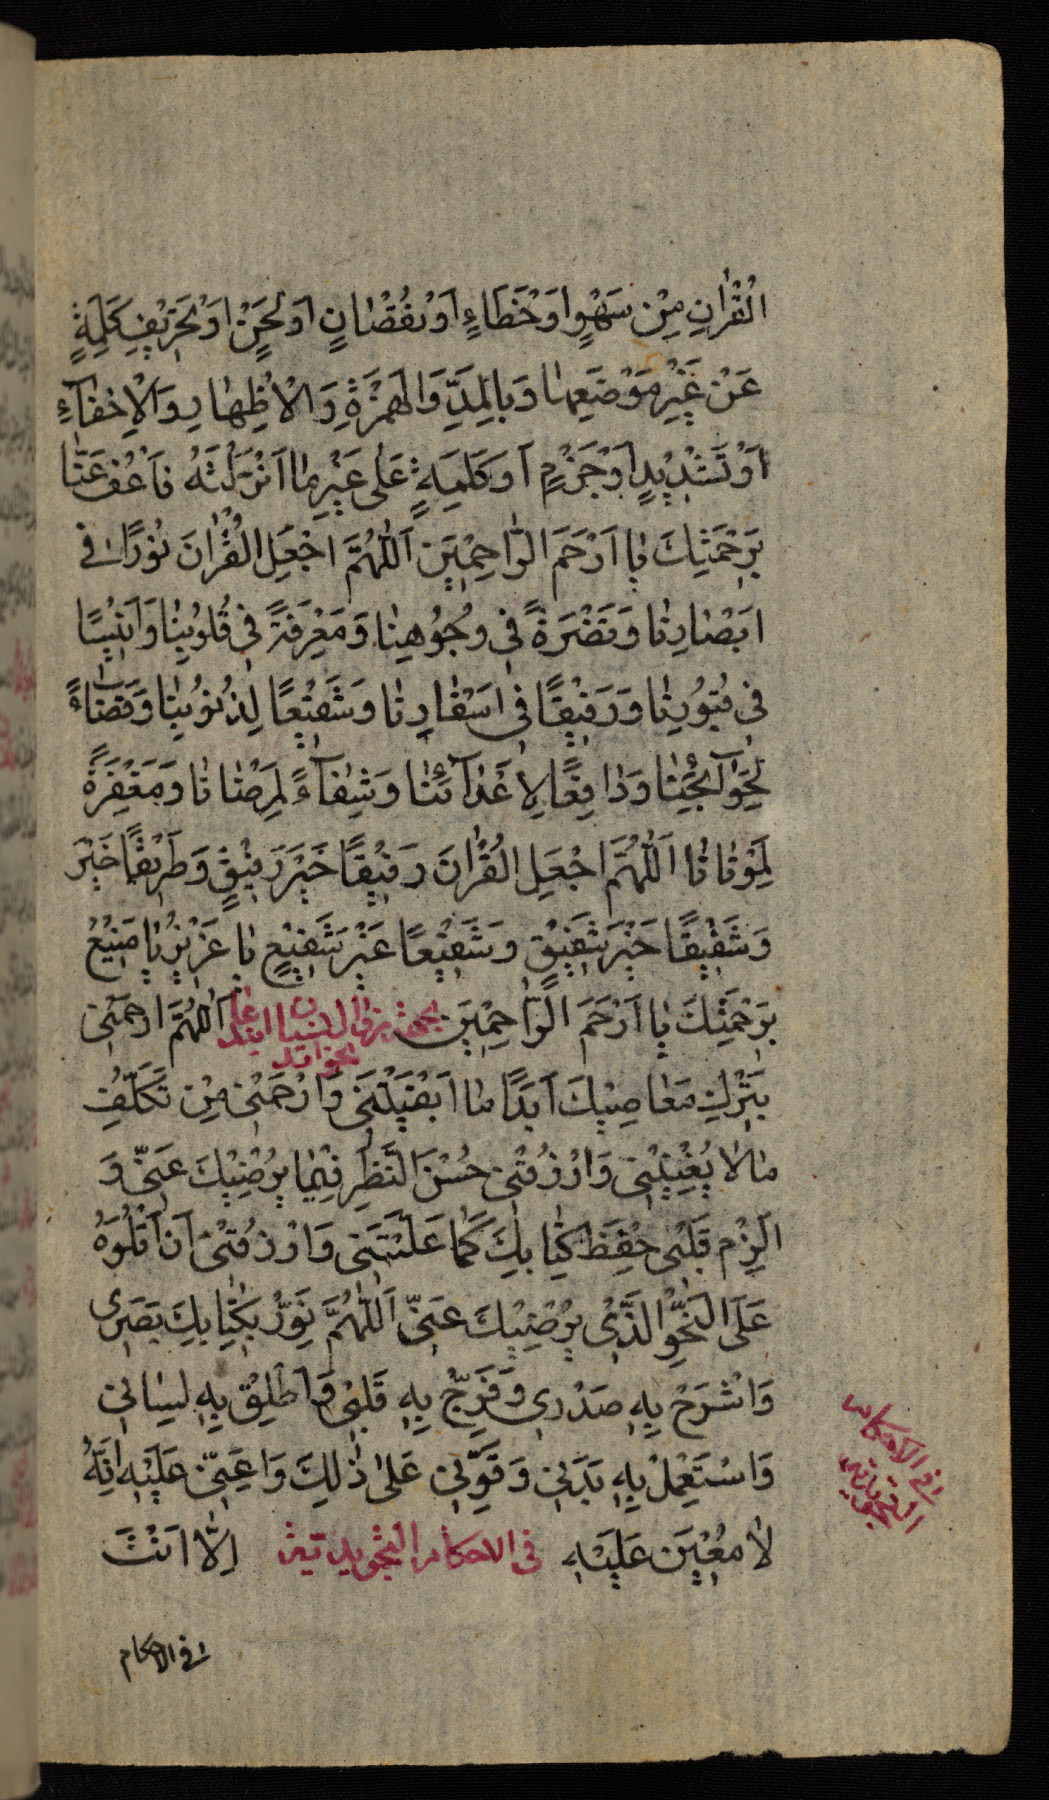 الْقُرْاٰنِ مِنْ سَهْوٍ اَوْ خَطَاءٍ اَوْ نُقْصٰانٍ اَوْ لَحْنٍ اَوْ تَحْرِيْفِ كَلِمَةٍ
عَنْ غَيْرِ مَوْضَعِهٰا وَبِالْمَدِّ وَالْهَمْزَةِ وَالْاِظْهٰارِ وَالْاِخْفٰآءِ
اَوْ تَشْدِيْدٍ اَوْ جَزْمٍ اَوْ كَلِمَةٍ عَلٰى غَيْرِ مٰا اَنْزَلْتَهُ فَاعْفُ عَنّٰا
بِرَحْمَتِكَ يٰا اَرْحَمَ الرّٰاحِمِيْنَ اَللّٰهُمَّ اجْعَلِ الْقُرْاٰنَ نُوْرًا فى
اَبْصٰارِنٰا وَنَضْرَةً فى وُجُوْهِنٰا وَمَعْرِفَةً فى قُلُوْبِنٰا وَاَنِيْسًا
فى قُبُوْرِنٰا وَرَفِيْقًا فى اَسْفٰارِنٰا وَشَفِيْعًا لِذُنُوْبِنٰا وَقَضٰآءً
لِحَوٰآئِجِنٰا وَدٰافِعًا لِاَعْدٰآئِنٰا وَشِفٰآءً لِمَرْضٰانٰا وَمَغْفِرَةً
لِمَوْتٰانٰا اَللّٰهُمَّ اجْعَلِ الْقُرْاٰنَ رَفِيْقًا خَيْرَ رَفِيْقٍ وَطَرِيْقًا خَيْرَ
وَشَفِيْقًا خَيْرَ شَفِيْقٍ وَشَفِيْعًا غَيْرَ شَفِيْعٍ يٰا عَزِيْزُ يٰا مَنِيْعُ
بِرَحْمَتِكَ يٰا اَرْحَمَ الرّٰاحِمِيْنَ اَللّٰهُمَّ ارْحَمْنى
بخواند
بِتَرْكِ مَعٰاصِيْكَ اَبَدًا مٰا اَبْقَيْتَنى وَارْحَمْنى مِنْ تَكَلُّفِ
مٰا لٰا يُغْنِيْنى وَارْزُقْنى حُسْنَ النَّظَرِ فِيْمٰا يُرْضِيْكَ عَنّى وَ
اَلْزِمْ قَلْبى حِفْظَ كِتٰابِكَ كَمٰا عَلَّمْتَنى وَارْزُقْنى اَنْ اَتْلُوَهُ
عَلَى النَّحْوِ الَّذى يُرْضِيْكَ عَنّى اَللّٰهُمَّ نَوِّرْ بِكِتٰابِكَ بَصَرى
وَاشْرَحْ بِهِ صَدْرى وَفَرِّجْ بِهِ قَلْبى وَاَطْلِقْ بِهِ لِسٰانى
وَاسْتَعْمِلْ بِهِ بَدَنى وَقَوِّنى عَلٰى ذٰلِكَ وَاَعِنّى عَلَيْهِ اِنَّهُ
لٰا مُعِيْنَ عَلَيْهِ اِلّٰا اَنْتَ فى الاحكام التجويديته
فى الاحكام
فى الاحكام